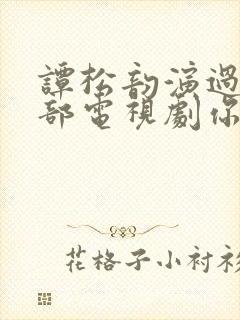 譚松韵演過
部電視劇你
花格子小衬衫